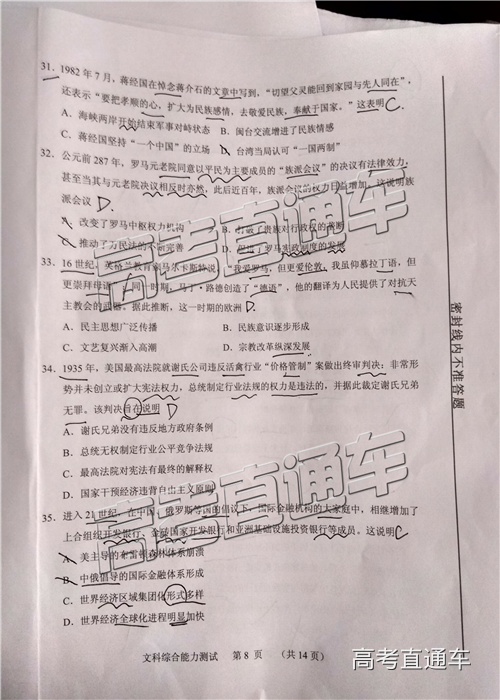 31. 1982 年 7 月，蒋经国在悼念蒋介石的文章中写到，“切望父灵能回到家园与先人同在”，
还表示“要把孝顺的心，扩大为民族感情，去敬爱民族，奉献于国家。”这表明 C
A、海峡两岸开始结束军事对峙状态 B、闽台交流增进了民族情感
C、蒋经国坚持“一个中国”的立场 D、台湾当局认可“一国两制”
32. 公元前 287 年，罗马元老院同意以平民为主要成员的“族派会议”的决议有法律效力，
甚至当其与元老院决议相反时亦然，此后近百年，族派会议的权力日益增加。这说明族
派会议 D
A、改变了罗马中枢权力机构 B、打破了贵族对行政权的垄断
C、推动了万民法的不断完善 D、促进了罗马宪政制度的发展
33. 16 世纪，英格兰教育家马尔卡斯特说：“我爱罗马，但更爱伦敦，我虽仰慕拉丁语，但
更崇拜母语” 同一时期，马丁·路德创造了“德语”，他的翻译为人民提供了对抗天
主教会的武器。据此推断，这一时期的欧洲
A、民主思想广泛传播 B、民族意识逐步形成
C、文艺复兴渐入高潮 D、宗教改革纵深发展
34. 1935 年，美国最高法院就谢氏公司违反活禽行业“价格管制”案做出终审判决：非常形
势并未创立或扩大宪法权力，总统制定行业法规的权力是违法的，并据此裁定谢氏兄弟
无罪。该判决旨在说明 D
A、谢氏兄弟没有违反地方政府条例
B、总统无权制定行业公平竞争法规
C、最高法院对宪法有最终的解释权
D、国家干预经济违背自由主义原则
35. 进入 21 世纪，在中国、俄罗斯等国的倡议下，国际金融机构的大家庭中，相继增加了
上合组织开发银行、金砖国家开发银行和亚洲基础设施投资银行等成员。这说明 C
A、美主导的布雷顿森林体系崩溃
B、中俄倡导的国际金融体系形成
C、世界经济区域集团化形式多样
D、世界经济全球化进程明显加快
文科综合能力测试 第 8 页 （共 14 页）
密封线内不准答题
高考直通车
高考直通车
高考直通车